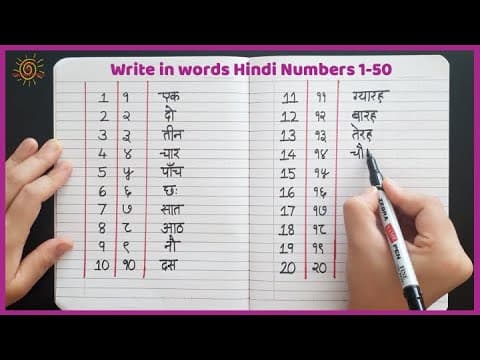 Write in words Hindi Numbers 1-50
1 १ एक
2 २ दो
3 ३ तीन
4 ४ चार
5 ५ पाँच
6 ६ छः
7 ७ सात
8 ८ आठ
9 ९ नौ
10 १० दस
11 ११ ग्यारह
12 १२ बारह
13 १३ तेरह
14 १४ चौ
15 १५
16 १६
17 १७
18 १८
19 १९
20 २०
ZEBRA
PEN